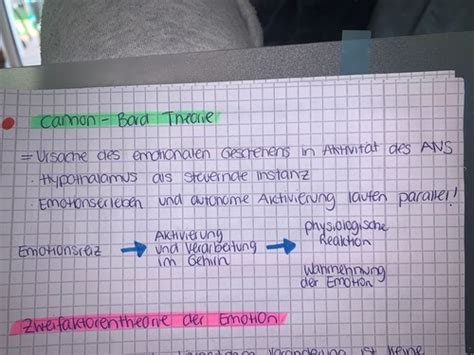 Cannon-Bard Theorie
= Ursache des emotionalen Geschehens in Aktivität des ANS
· Hypothalamus als steuernde Instanz
· Emotionserleben und autonome Aktivierung laufen parallel!
Emotionsreiz → Aktivierung und Verarbeitung im Gehirn → physiologische Reaktion
Wahrnehmung der Emotion
Zweifaktorentheorie der Emotion
Veränderung ist keine